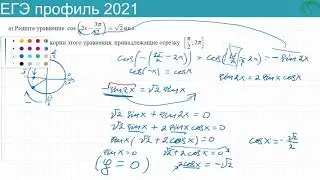 ЕГЭ профиль 2021
а) Решите уравнение cos(2x − 3π/2) = √2 sin x
корни этого уравнения, принадлежащие отрезку
cos(−(3π/2 − 2x)) = cos(3π/2 − 2x) = −sin 2x
cos(−x) = cos x
sin 2x = 2 sin x cos x
−sin 2x = √2 sin x
√2 sin x + sin 2x = 0
√2 sin x + 2 sin x cos x = 0
sin x (√2 + 2cos x) = 0
sin x = 0 √2 + 2cos x = 0
2cos x = −√2
cos x = −√2/2